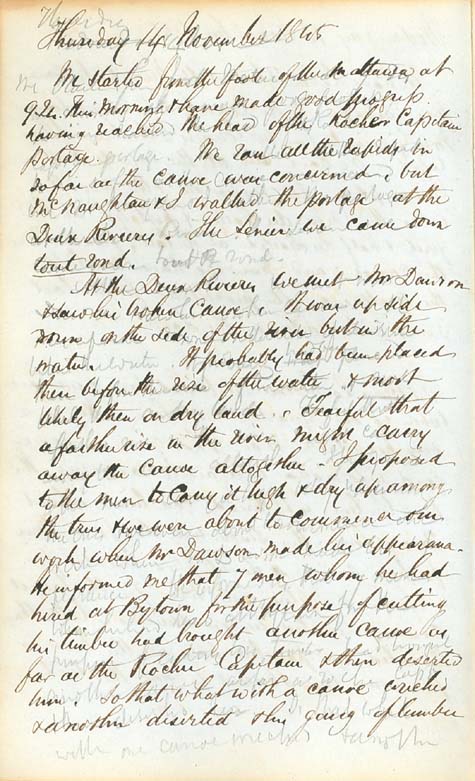 Thursday 14 November 1845
We started from the foot of the Mattawa at
9.20 this morning & have made good progress
having reached the head of the Rocher Capitain
Portage. We ran all the rapids in
so far as the canoe was concerned, but
McNaughtan & I walked the portage at the
Deux Rivieres. The Levier we came down
tout rond.
At the Deux Rivieres we met Mr Dawson
& saw his broken Canoe. It was up side
down on the side of the river but in the
water. It probably had been placed
there before the rise of the water & most
likely then on dry land. Fearful that
a farther rise in the river might carry
away the canoe altogether. I proposed
to the men to carry it high & dry up among
the trees & we were about to commence our
work when Mr Dawson made his appearance.
He informed me that 7 men whom he had
hired at Bytown for the purpose of cutting
his timber had brought another canoe as
far as the Rocher Capitain & then deserted
him. So that what with a canoe wrecked
& another deserted & his gang of lumber
with one canoe wrecked & another